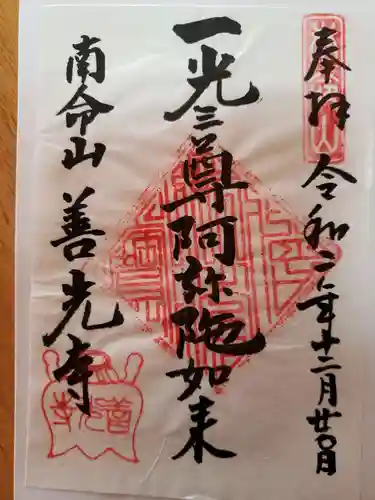 奉拝
令和二年十二月廿日
一光三尊阿弥陀如来
南命山善光寺